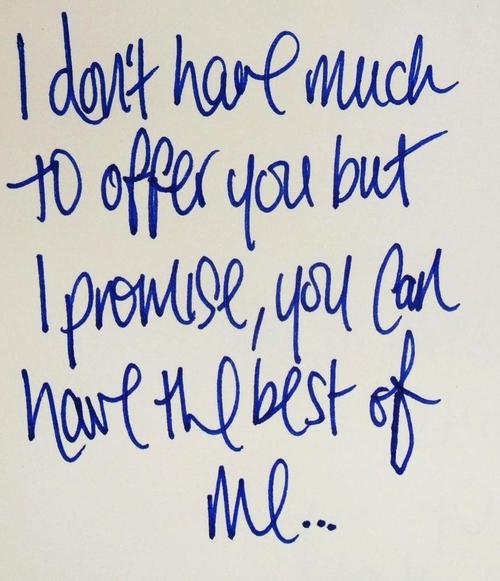 I don't have much
to offer you but
I promise, you can
have the best of
me...